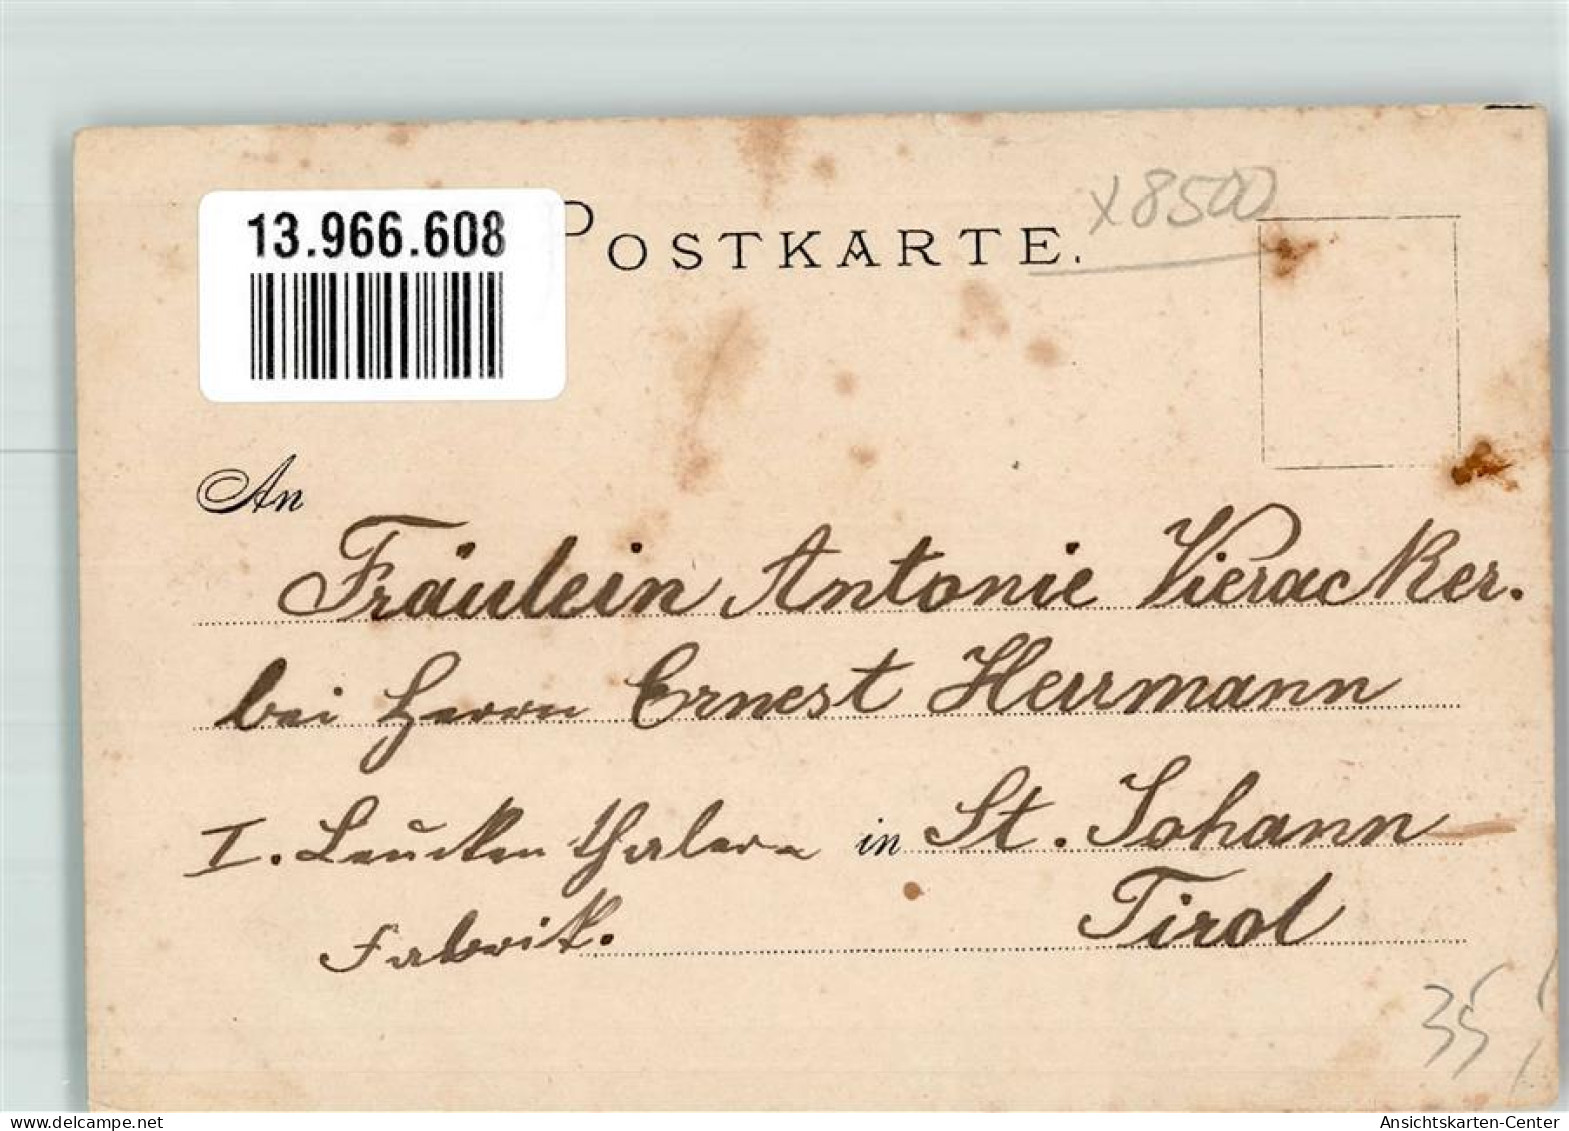 13.966.608
POSTKARTE.
x 8500
An
Fräulein Antonie Vieracker.
bei Herrn Ernest Herrmann
I. Leukenthaler- in St. Johann
Fabrik. Tirol
35
www.delcampe.net
Ansichtskarten-Center